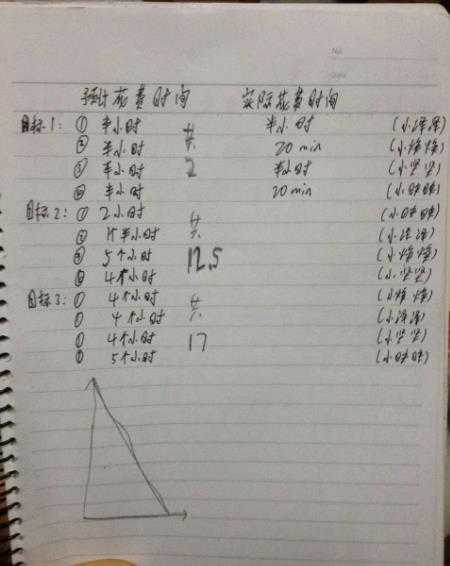 预计花费时间 实际花费时间
目标1: ① 半小时 共 半小时 (小泽泽)
② 半小时 共 20 min (小烽烽)
③ 半小时 2 半小时 (小坚坚)
④ 半小时 20 min
目标2: ① 2小时 共
② 1个半小时 共 (小泽泽)
③ 5个小时 12.5 (小烽烽)
④ 4个小时 (小坚坚)
目标3: ① 4个小时 共 (小烽烽)
① 4个小时 共 (小泽泽)
① 4个小时 17 (小坚坚)
① 5个小时